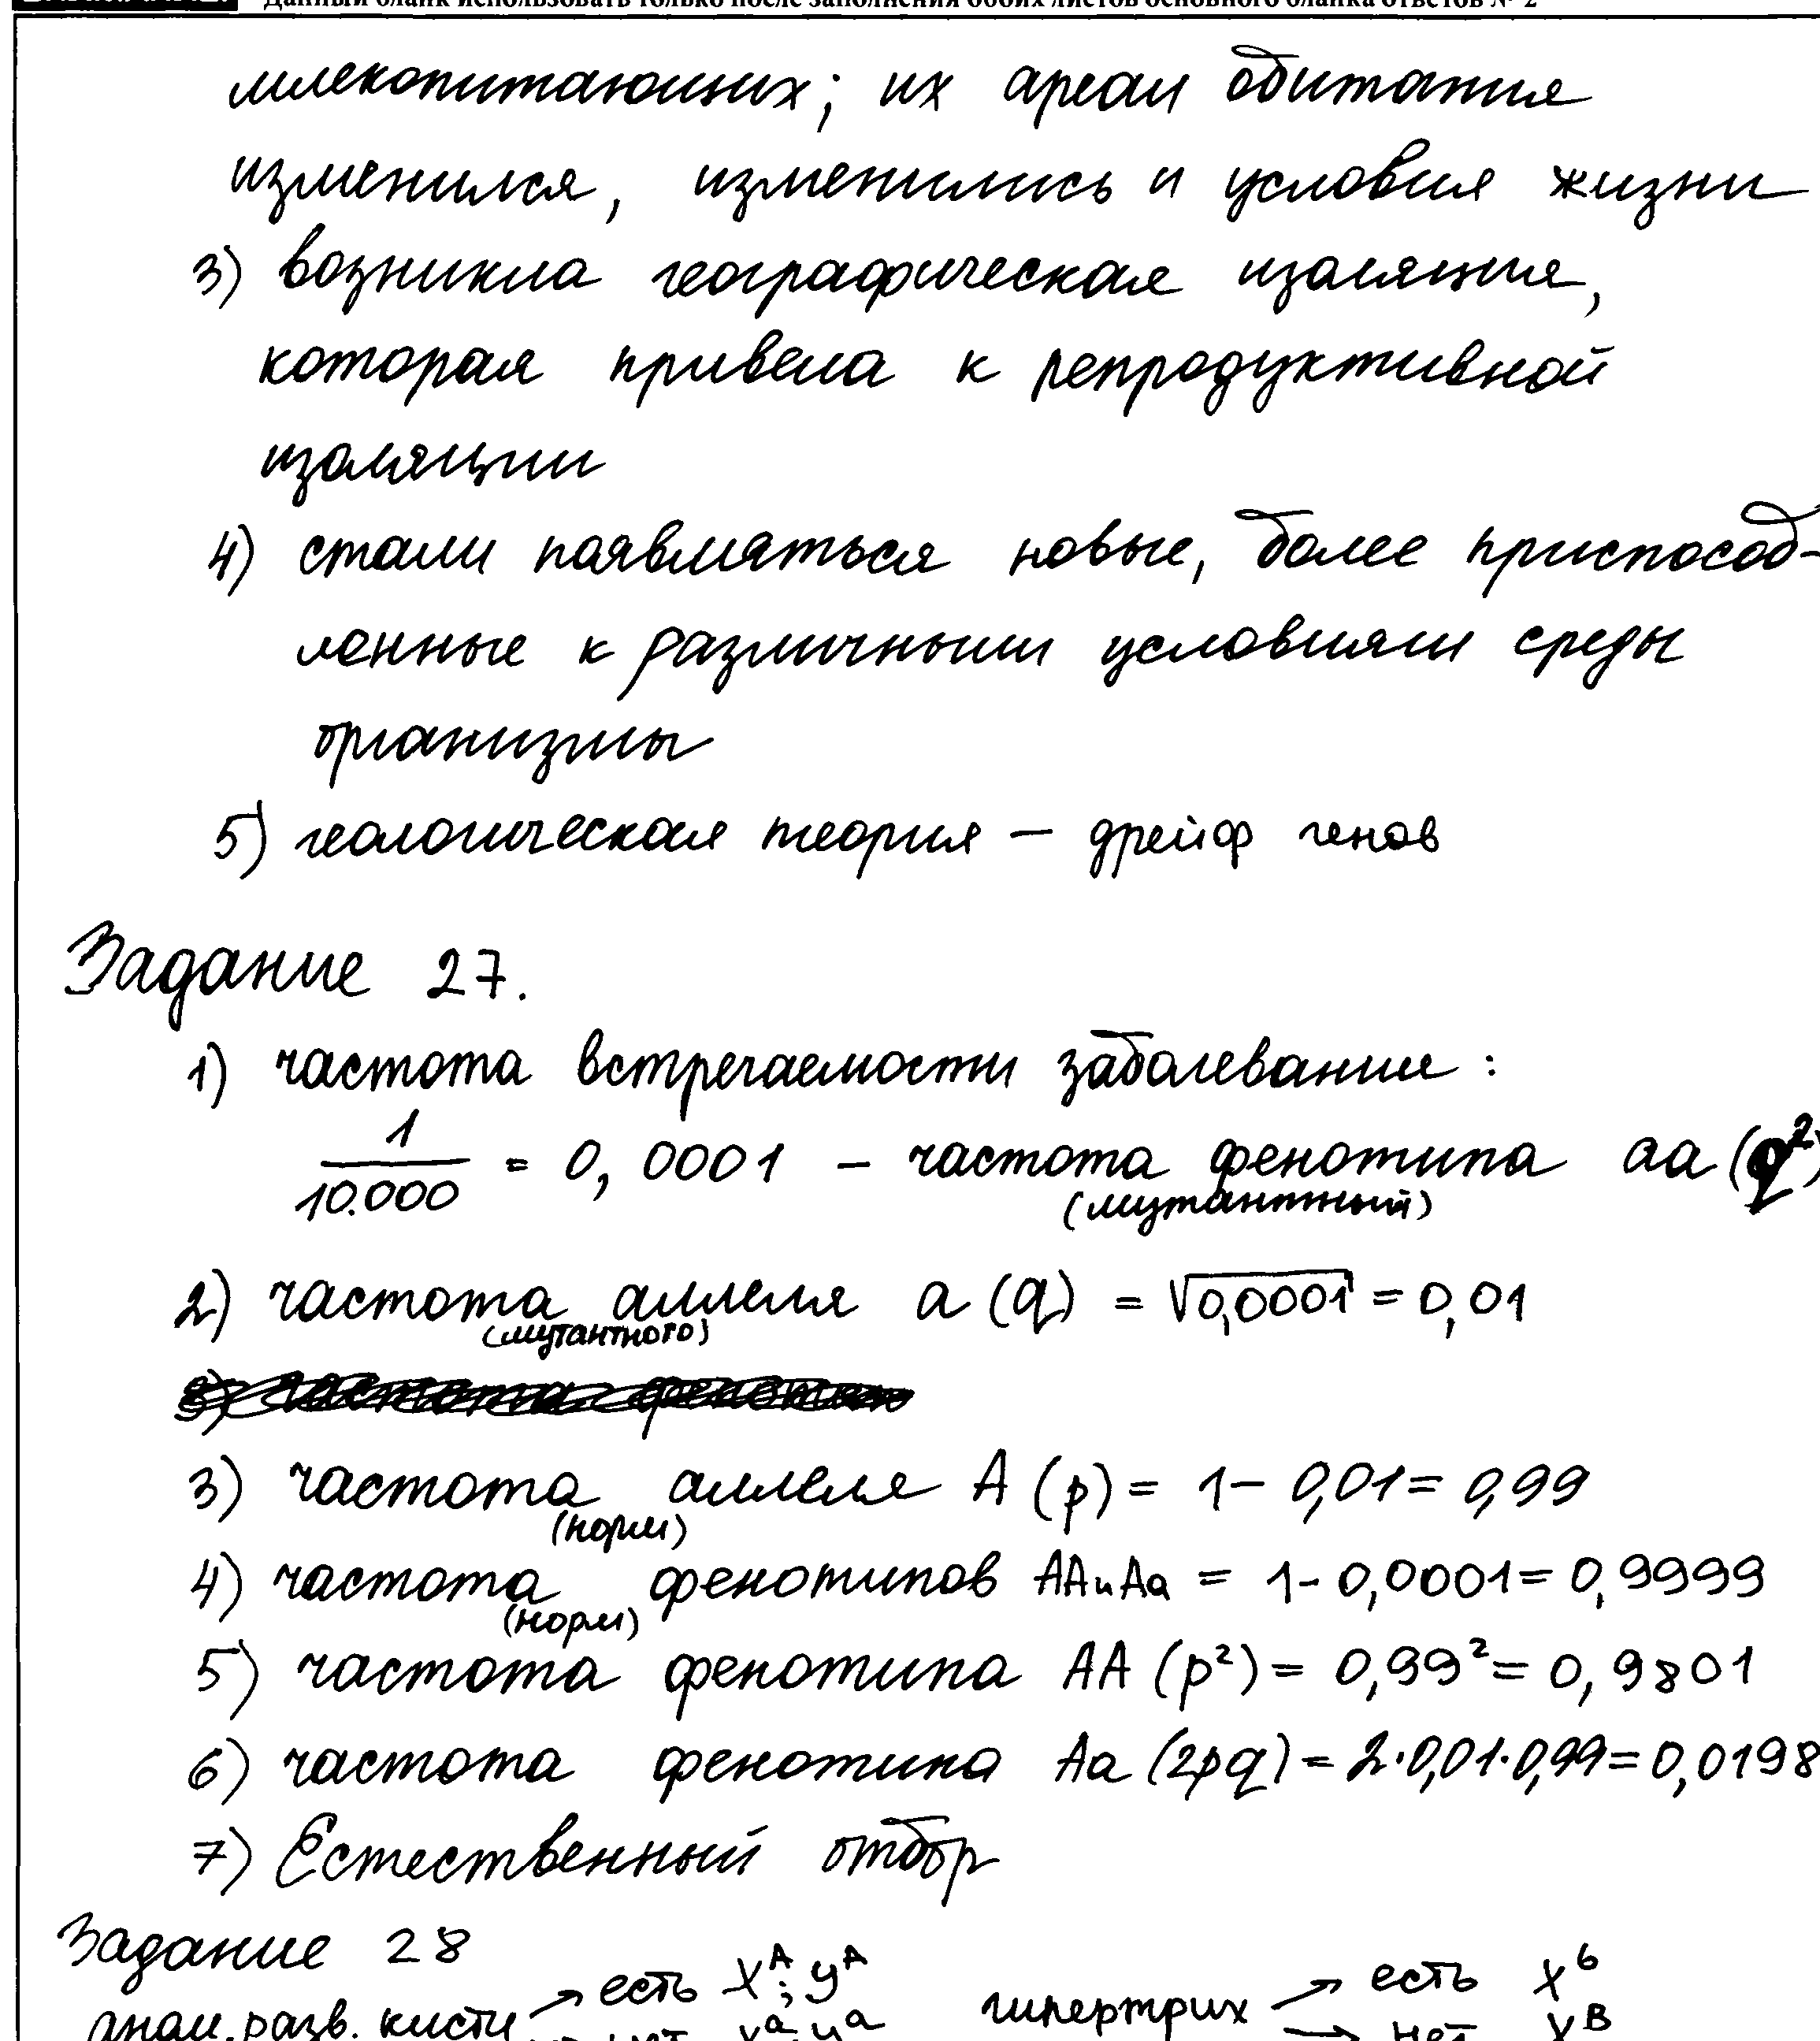 Данный бланк использовать только после заполнения обоих листов основного бланка ответов № 2
млекопитающих; их ареал обитания
изменился, изменились и условия жизни
3) возникла географическая изоляция,
которая привела к репродуктивной
изоляции
4) стали появляться новые, более приспособ-
ленные к различным условиям среды
организмы
5) геологическая теория – дрейф генов
Задание 27.
1) частота встречаемости заболевания:
1/10.000 = 0,0001 – частота фенотипа aa (q²)
(мутантный)
2) частота аллеля a (q) = √0,0001 = 0,01
(мутантного)
3) частота аллеля A (p) = 1 – 0,01 = 0,99
(норм)
4) частота фенотипов AA и Aa = 1 - 0,0001 = 0,9999
(норм)
5) частота фенотипа AA (p²) = 0,99² = 0,9801
6) частота фенотипа Aa (2pq) = 2·0,01·0,99 = 0,0198
7) Естественный отбор
Задание 28
→ есть X^A; y^A → есть X^b
аном. разв. кисти гипертрих
нет X^a; y^a → нет X^B